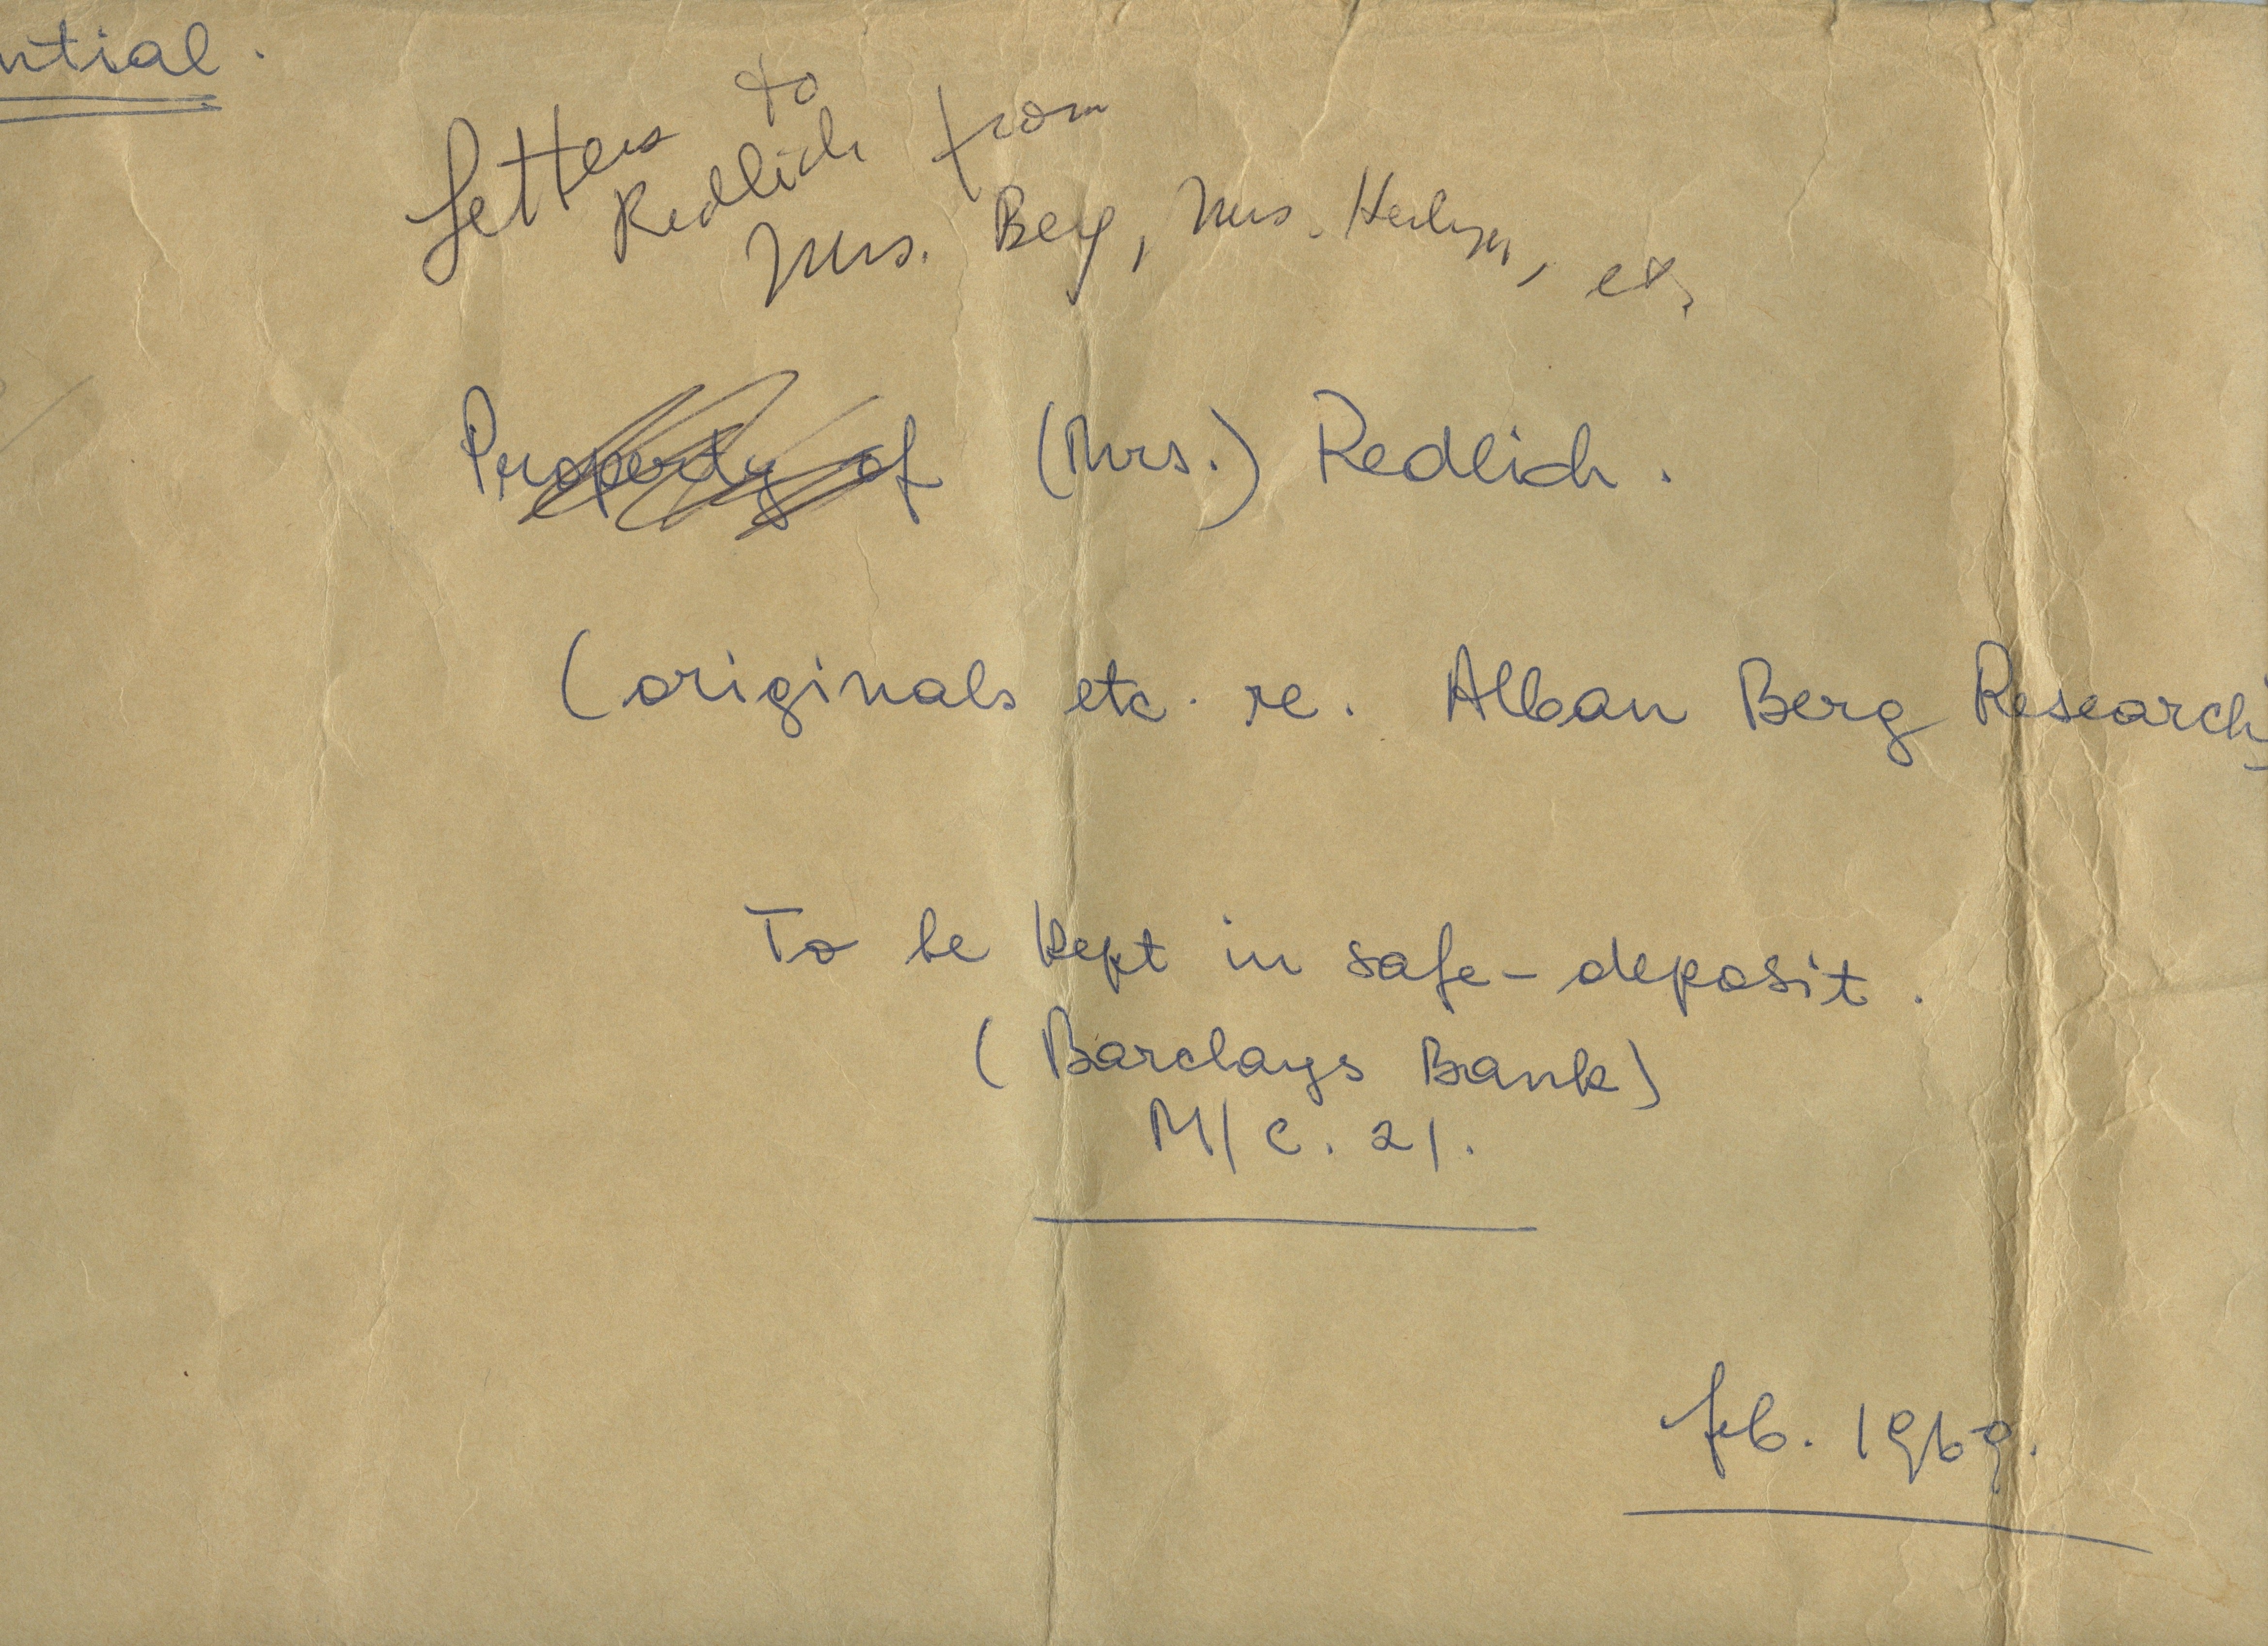 ntial.
Letters to
Redlich from
Mrs. Berg, Mrs. etc.
Property of (Mrs.) Redlich.
(originals etc. re. Alban Berg Research)
To be kept in safe-deposit.
(Barclays Bank)
M/C. 21.
Feb. 1969.